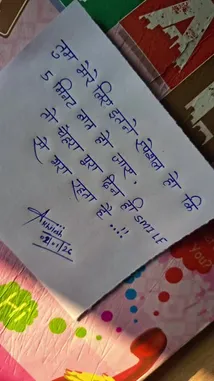 तुम मेरे लिए इतने स्पेशल हो की
5 मिनिट बात हो जाए.
तो चेहरा पुरा दिन ही SMILE
से भरा रहता है...!!
You?